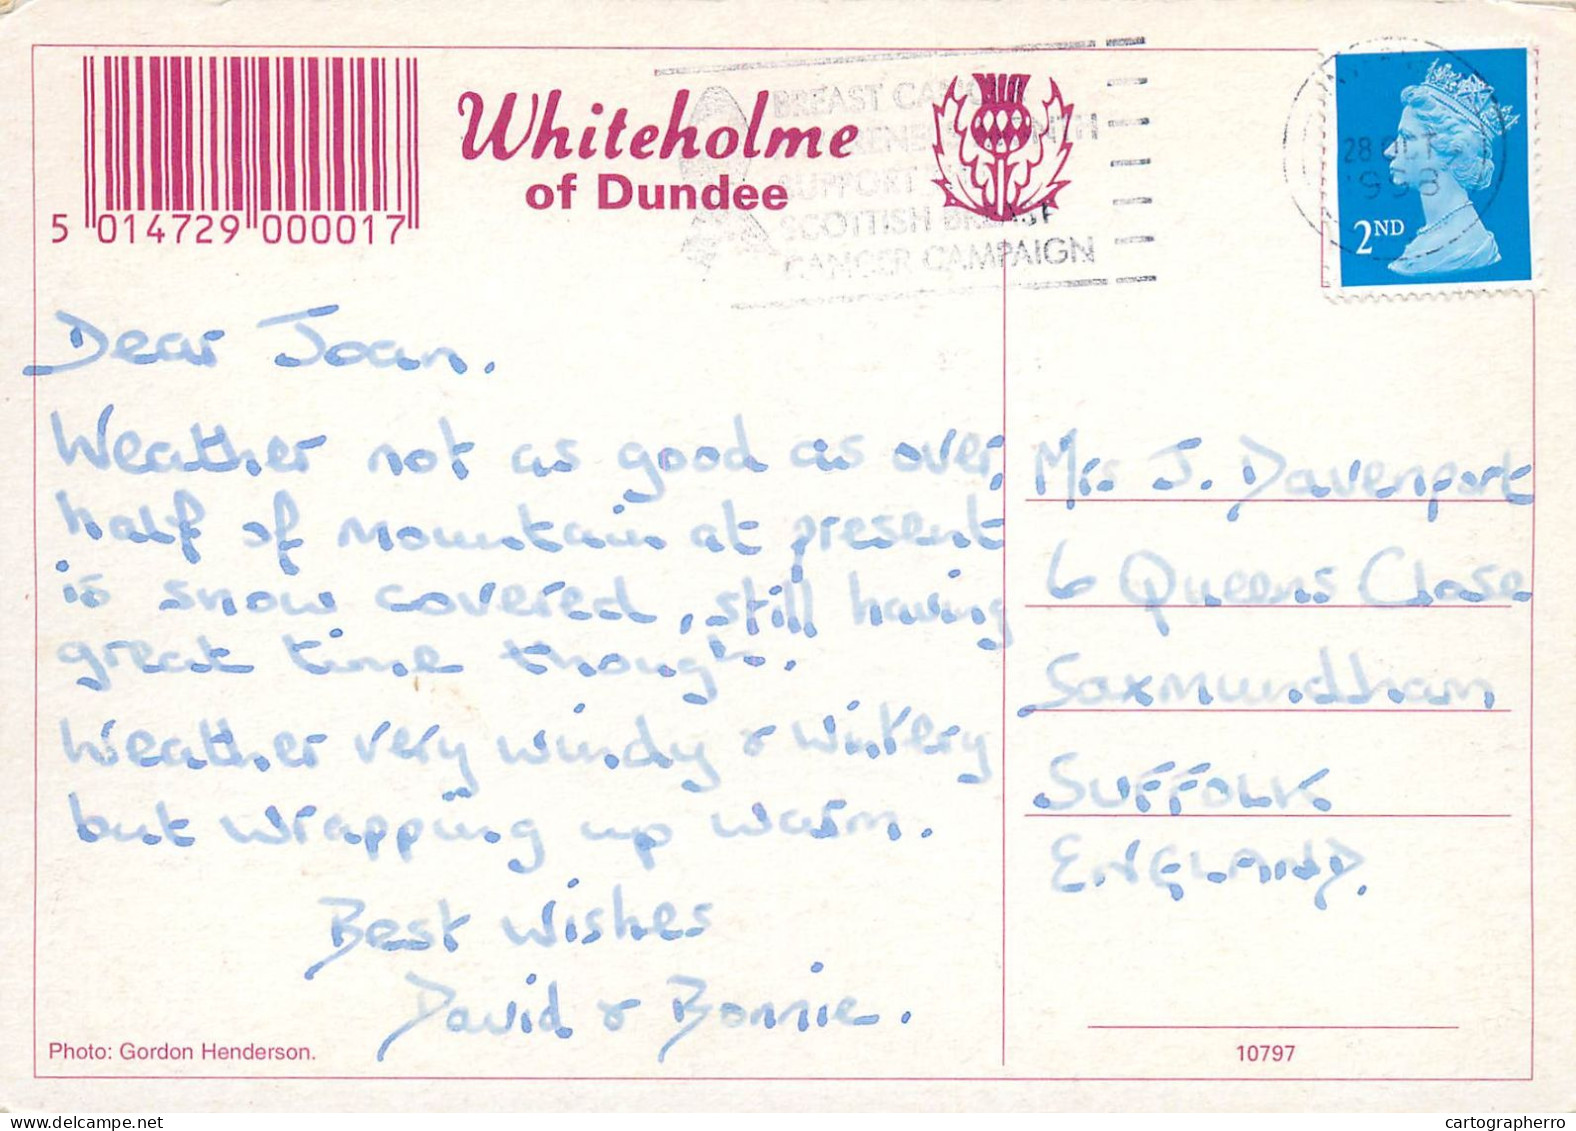 Whiteholme
of Dundee
5 014729 000017
BREAST
MONTH
SUPPORT
SCOTTISH BREAST
CANCER CAMPAIGN
28 OCT
1998
2ND
Dear Joan.
Weather not as good as over,
half of mountain at present
is snow covered, still having
great time though.
Weather very windy & wintery
but wrapping up warm.
Best Wishes
David & Bonnie.
Mrs J. Davenport
6 Queens Close
Saxmundham
SUFFOLK
ENGLAND.
Photo: Gordon Henderson.
10797
cartographerro